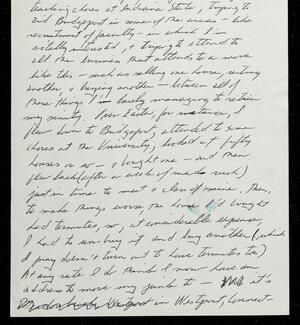 teaching chores at Indiana State, trying to
aid Bridgeport in some of the areas - like
recruitment of faculty - in which I'm
vitally interested, & trying to attend to
all the business that attends to a move
like this - such as selling one house, renting
another, & buying another - between all of
these things I'm barely managing to retain
my sanity. Over Easter, for instance, I
flew down to Bridgeport, attended to some
chores at the University, looked at fifty
houses or so - & bought one - and then
flew back (after a week of such)
just in time to meet a class of mine. Then,
to make things worse the house I'd bought
had termites, so, at considerable expense,
I had to un-buy it and buy another (which
I pray doesn't turn out to have termites too)
At any rate I do think I now have an
address to move my junk to - it's
in Westport, Connect-